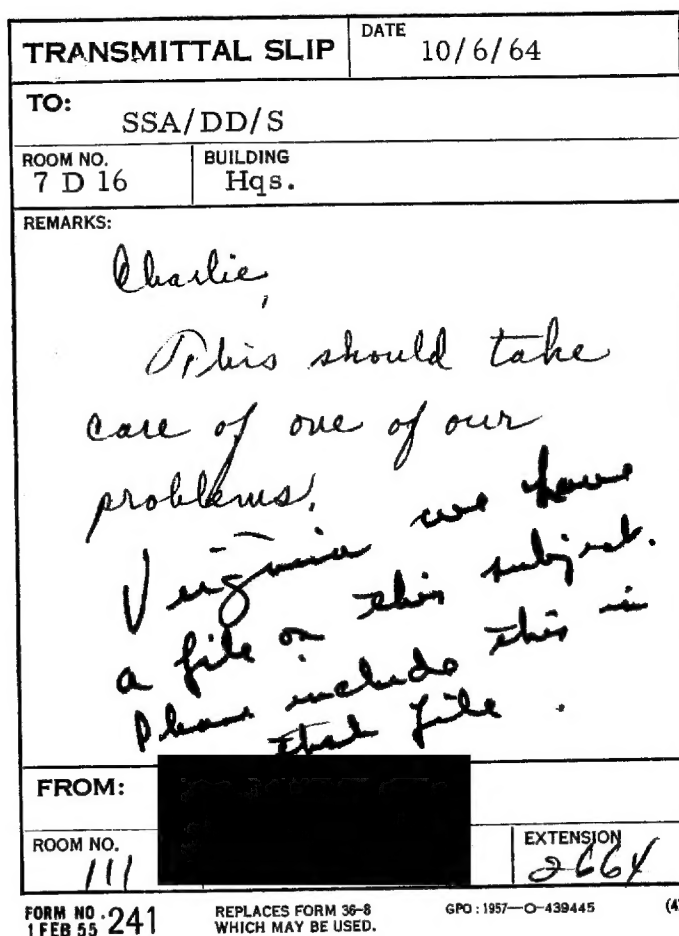 TRANSMITTAL SLIP
DATE
10/6/64
TO:
SSA/DD/S
ROOM NO.
7 D 16
BUILDING
Hqs.
REMARKS:
Charlie,
This should take
care of one of our
problems.
Virginia we have
a file on this subject.
Please include this in
that file.
FROM:
ROOM NO.
111
EXTENSION
2664
FORM NO. 241
1 FEB 55
REPLACES FORM 36-8
WHICH MAY BE USED.
GPO: 1957—O-439445